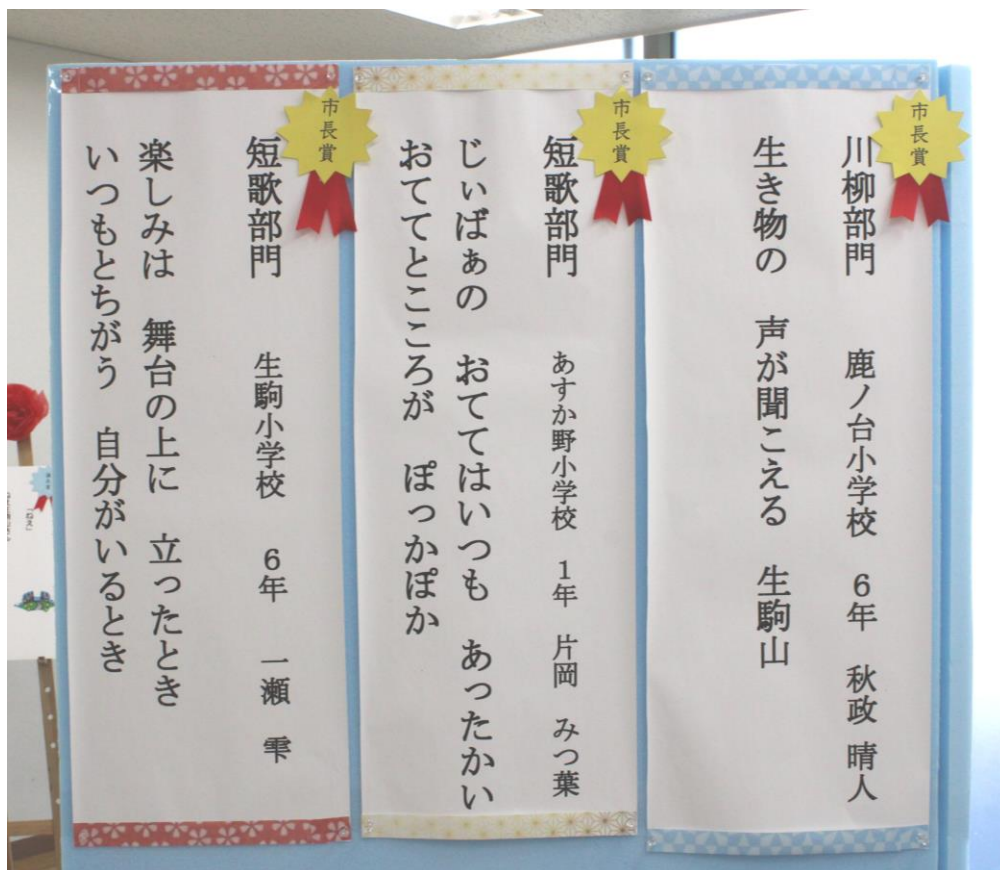 市長賞
川柳部門 鹿ノ台小学校 6年 秋政 晴人
生き物の 声が聞こえる 生駒山
市長賞
短歌部門 あすか野小学校 1年 片岡 みつ葉
じぃばぁの おててはいつも あったかい
おててとこころが ぽっかぽか
市長賞
短歌部門 生駒小学校 6年 一瀬 雫
楽しみは 舞台の上に 立ったとき
いつもとちがう 自分がいるとき
「ねえ」